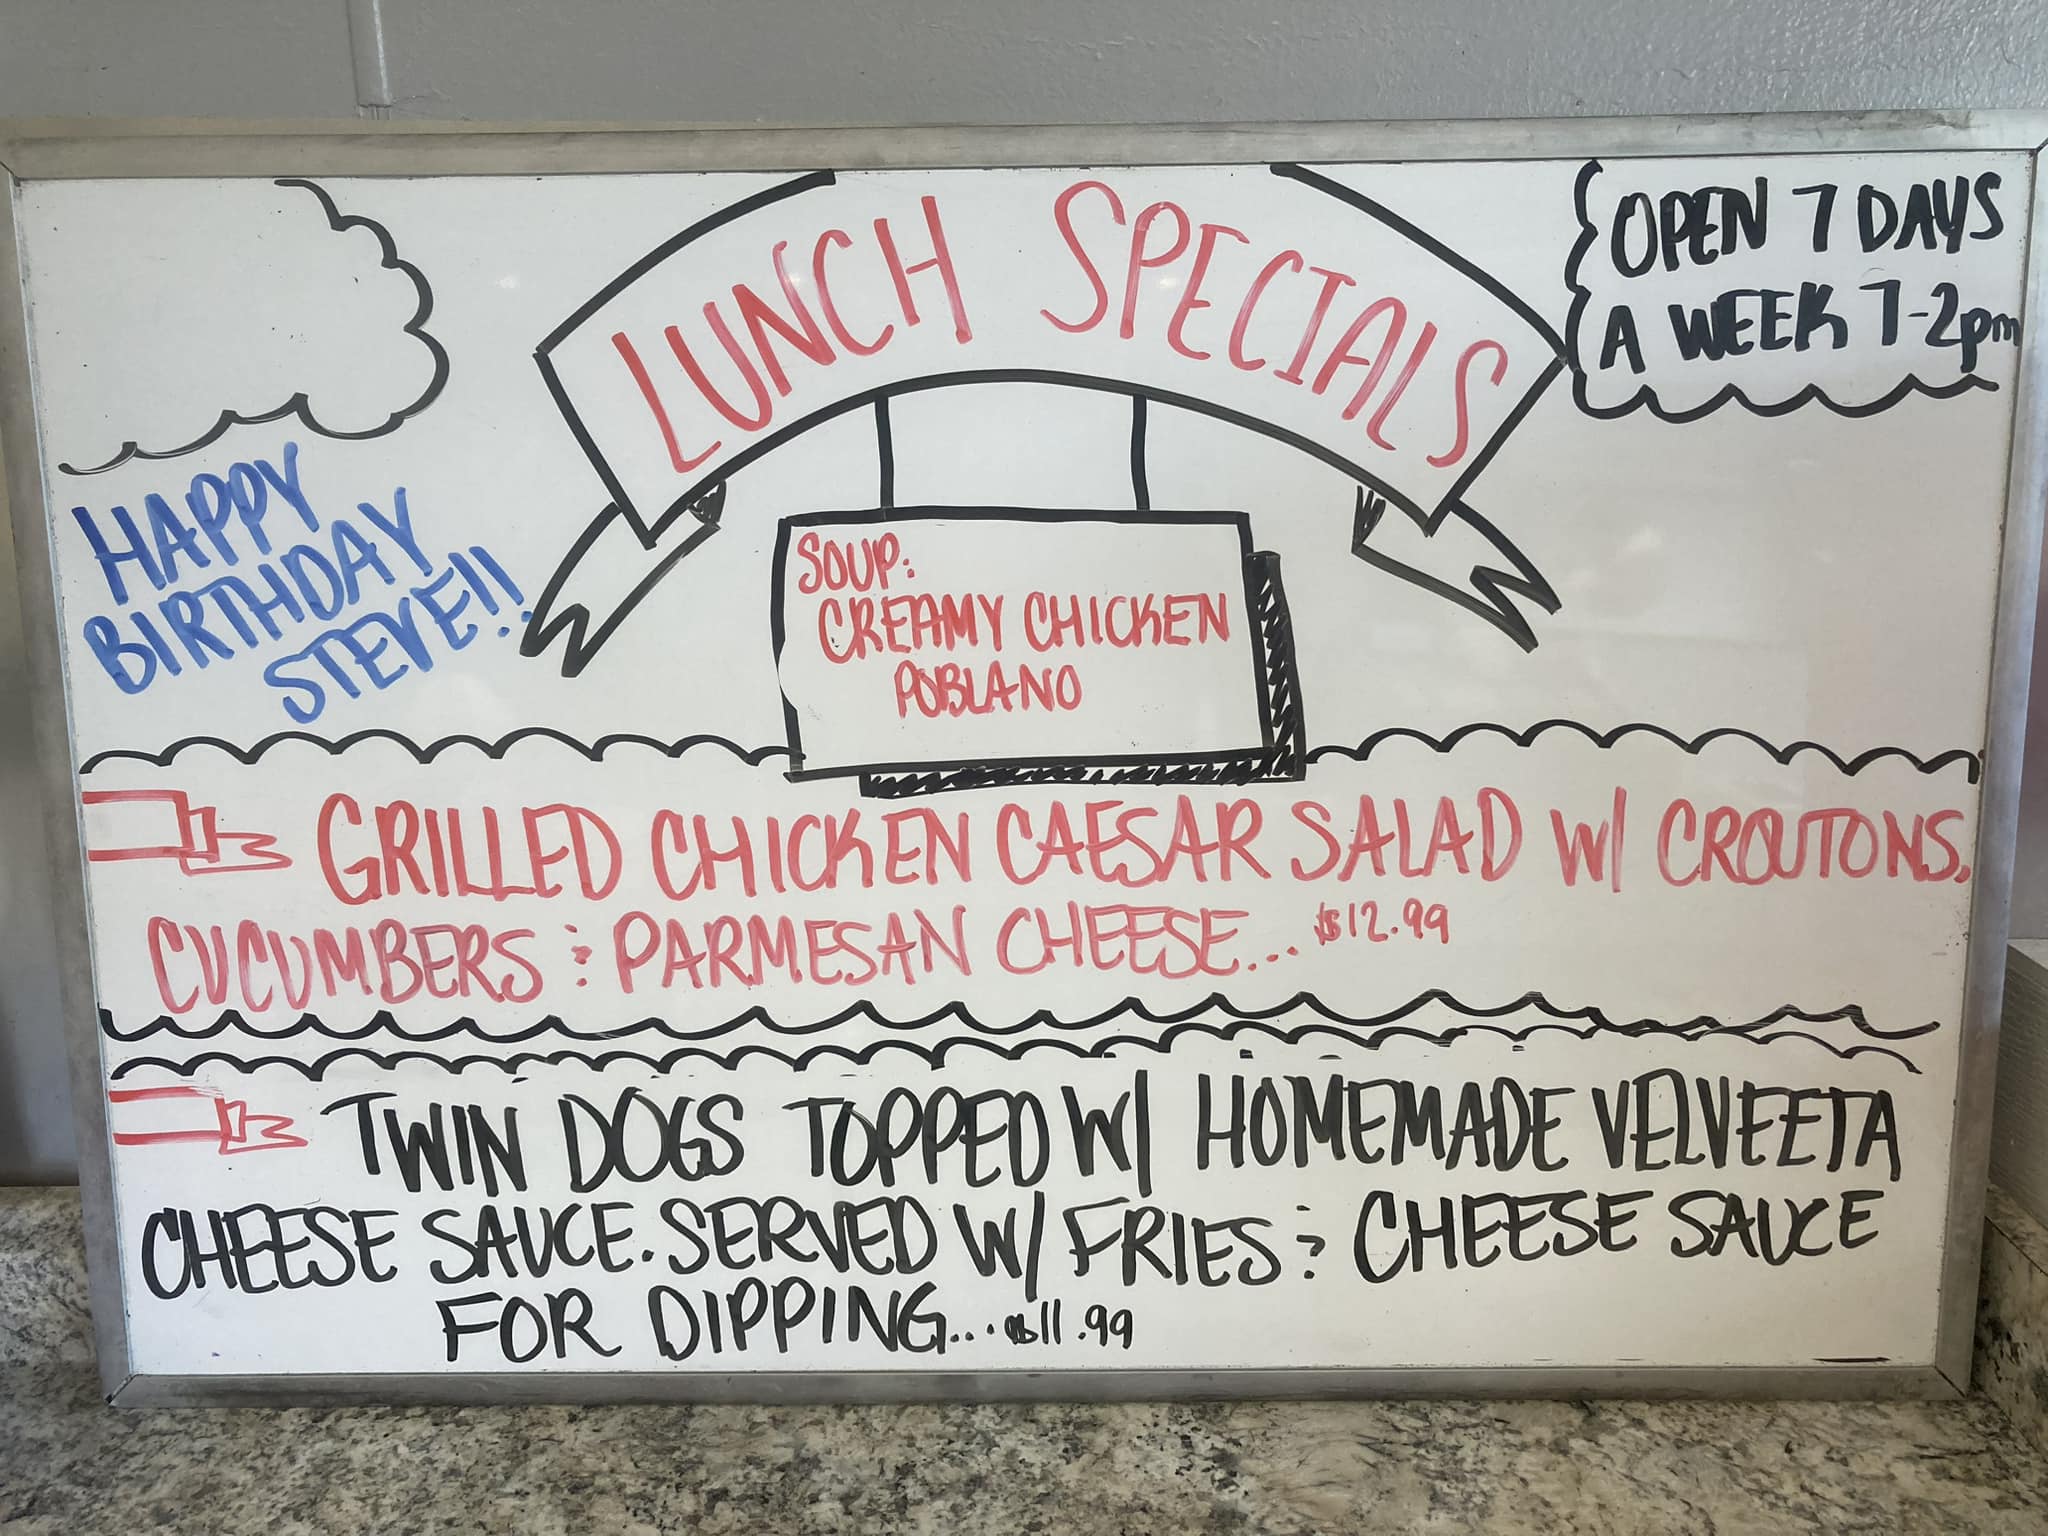 LUNCH SPECIALS
OPEN 7 DAYS
A WEEK 7-2pm
HAPPY
BIRTHDAY
STEVE!!
SOUP:
CREAMY CHICKEN
POBLANO
GRILLED CHICKEN CAESAR SALAD W/ CROUTONS,
CUCUMBERS & PARMESAN CHEESE... $12.99
TWIN DOGS TOPPED W/ HOMEMADE VELVEETA
CHEESE SAUCE. SERVED W/ FRIES & CHEESE SAUCE
FOR DIPPING... $11.99